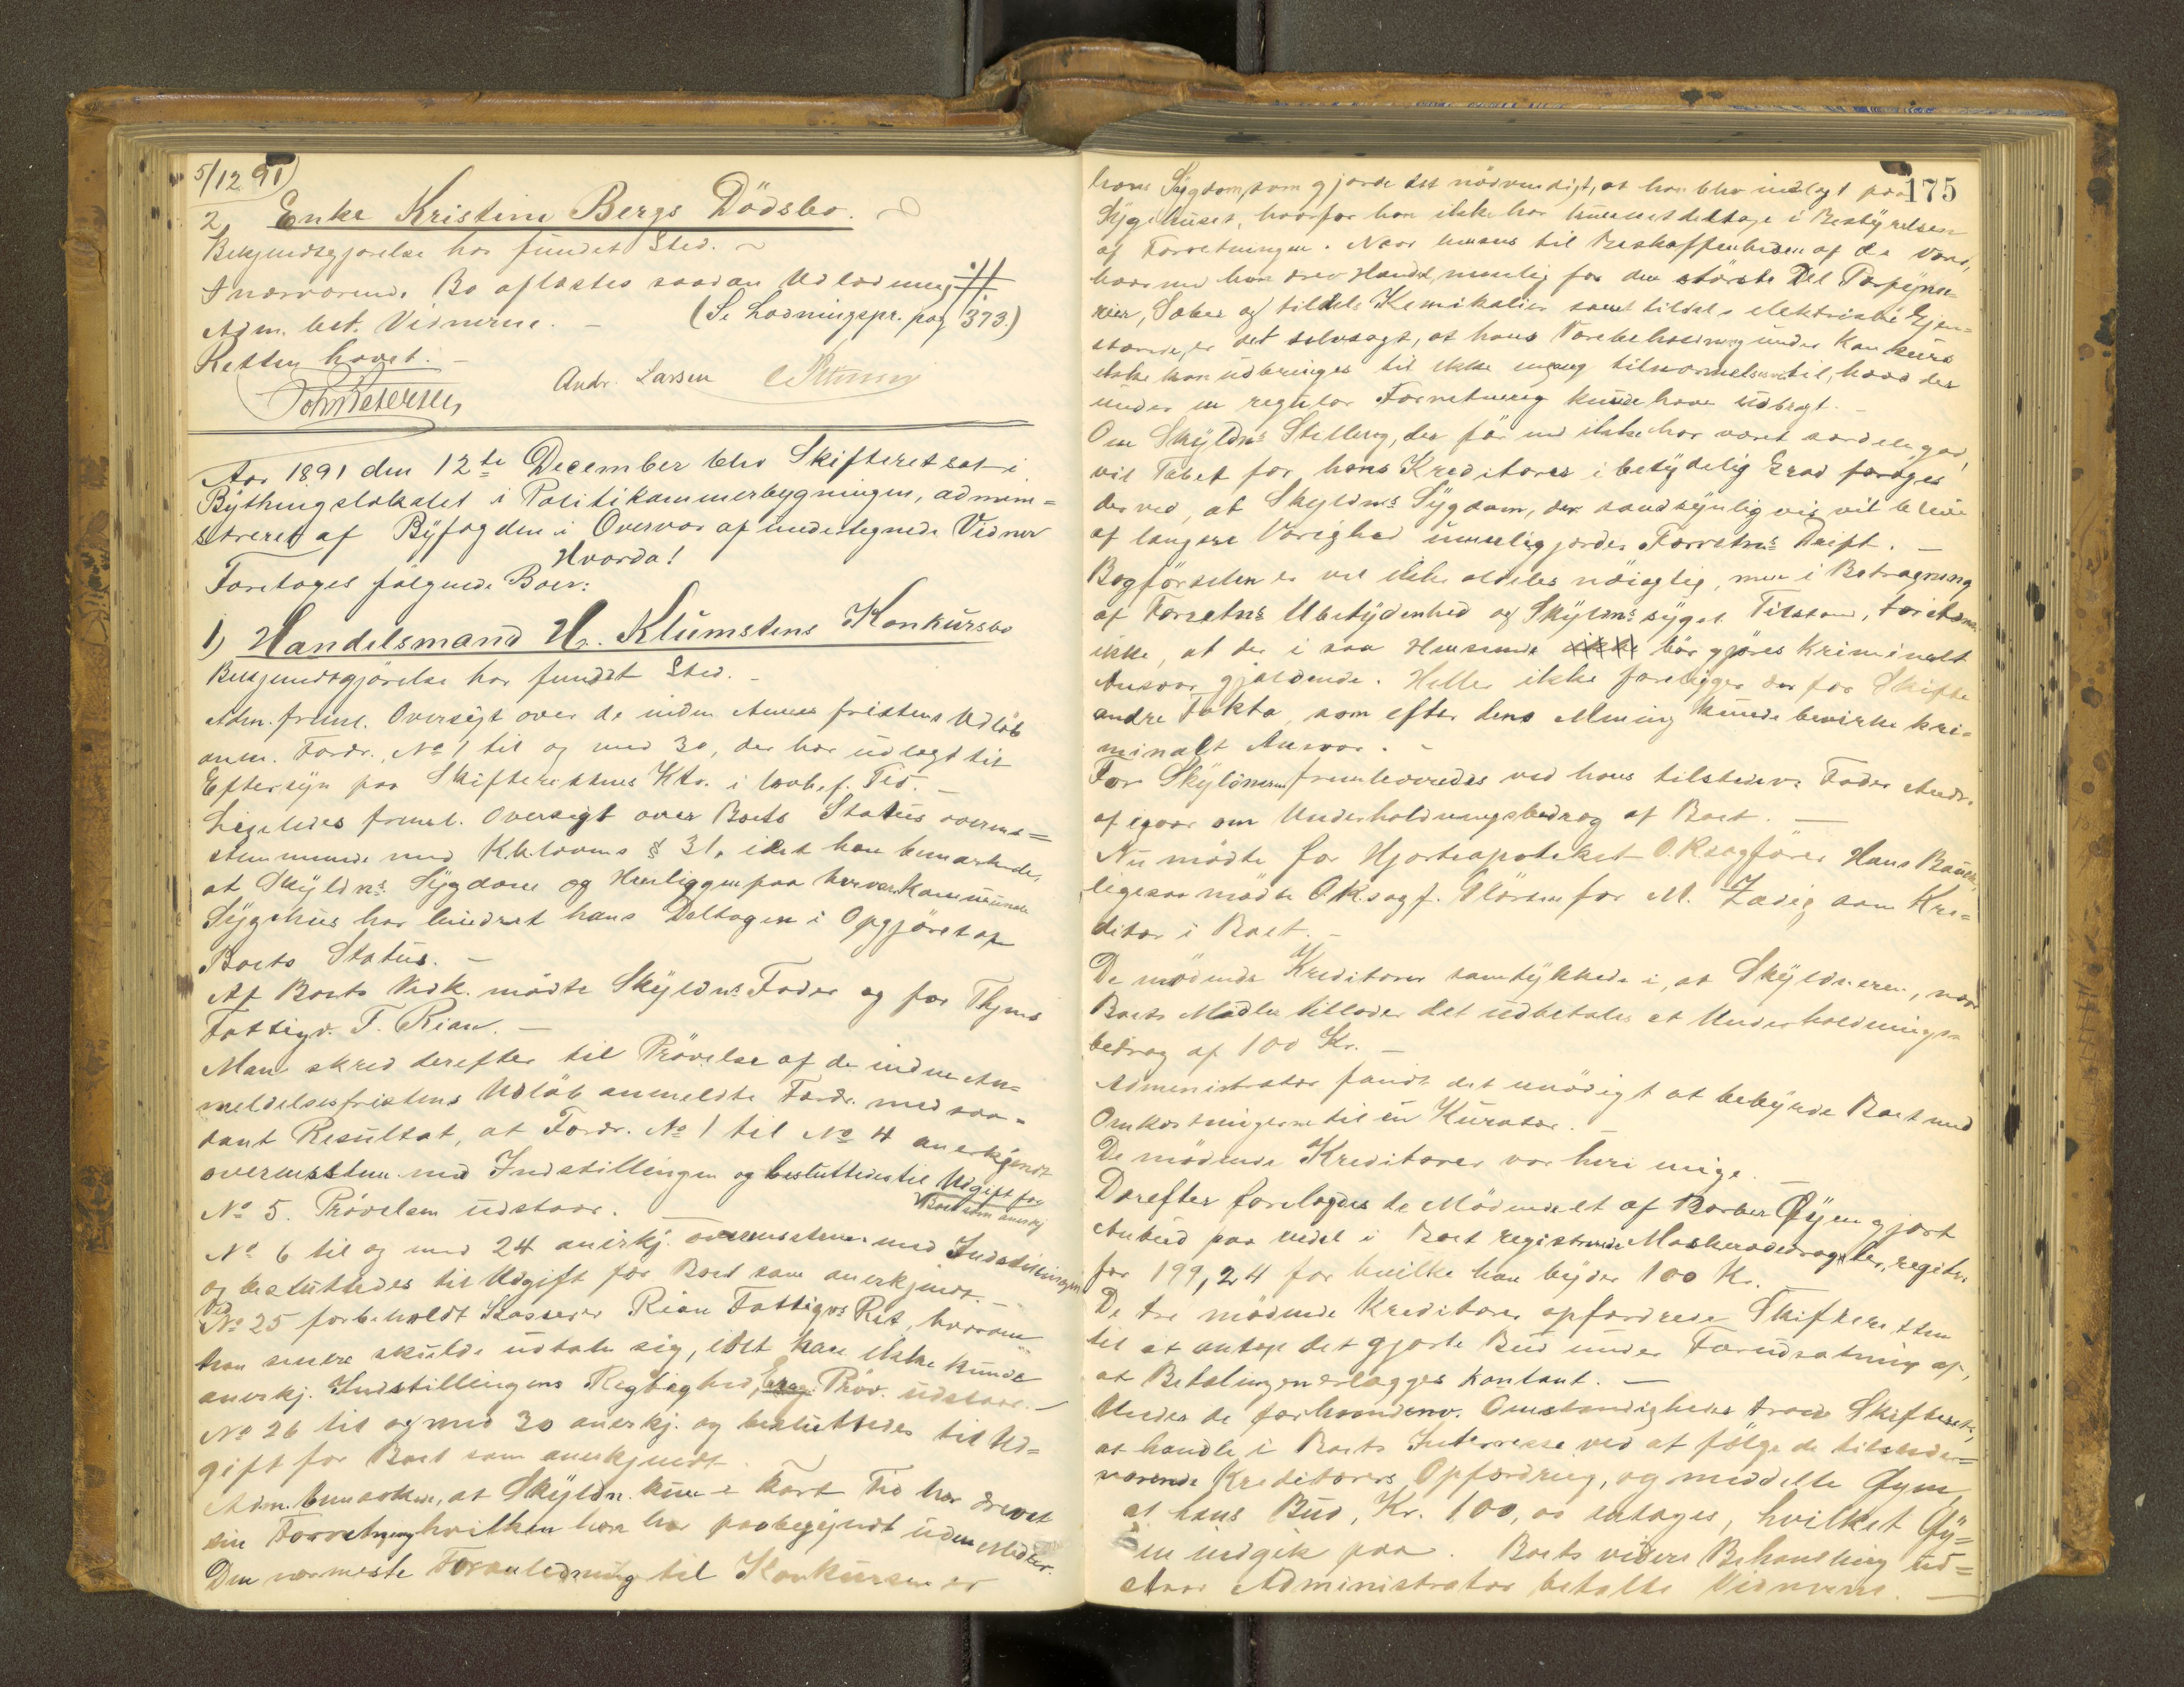 5/12 91)
2, Enke Kristine Bergs Dödsbo.
Bekjendtgjørelse har fundet Sted. –
I nærværende Bo afløstes saadan Udlodning
Adm. bet. Vidnerne. – (Se Lodningspr. pag 373.)
Retten hævet. –
Joh. Petersen Andr. Larsen
Aar 1891 den 12te December blev Skifteret sat i
Bythingslokalet i Politikammerbygningen, admini=
streret af Byfogden i Overvær af undertegnede Vidner
Hvorda!
Foretoges følgende Boer:
1) Handelsmand H. Klumstens Konkursbo
Bekjendtgjørelse har fundet Sted. –
Adm. freml. Oversigt over de inden Anm. fristens Udløb
anm. Fordr., No 1 til og med 30, der har udlagt til
Eftersyn paa Skifterettens Ktr. i lovbef. Tid. –
Ligeledes freml. Oversigt over Boets Status overens=
stemmende med K.k.lovens § 31, idet han bemærkede,
at Skyldns Sygdom og Henliggen paa herværende Kommunale
Sygehus har hindret hans Deltagen i Opgjøret af
Boets Status. –
Af Boets Vedk. mødte Skyldns Fader og for Thjems
Fattigv. T. Rian. –
Man skred derefter til Prøvelse af de inden An=
meldelsesfristens Udløb anmeldte Fordr. med saa=
dant Resultat, at Fordr. No 1 til No 4 anerkjendt
overensstem. med Indstillingen og besluttedes til Udgift for
Boet som anerkj
No 5. Prøvelsen udstaar.
No 6 til og med 24 anerkj. overensstem. med Indstillingen
og besluttedes til Udgift for Boet som anerkjendt. –
Ved
No 25 forbeholdt Kasserer Rian Fattigvs Ret, hvorom
han senere skulde udtale sig, idet han ikke kunde
anerkj. Indstillingens Rigtighed, Prøv. udstaar. –
No 26 til og med 30 anerkj. og besluttedes til Ud=
gift for Boet som anerkjendt.
Adm. bemærkede, at Skyldn. kun i kort Tid har drevet
sin Forretning hvilken han har paabegyndt uden Midler.
Den nærmeste Foranledning til Konkursen er
175
hans Sygdom, som gjorde det nødvendigt, at han blev indlagt paa
Sygehuset, hvorfor han ikke har kunnet deltage i Bestyrelsen
af Forretningen. Naar hensees til Beskaffenheden af de Varer,
hvormed han drev Handel, nemlig for den største Del Parfyme=
rier, Sæber og tildels Kemikalier samt tildels elektriske Gjen=
stande, er det selvsagt, at hans Varebeholdning under Konkurs
ikke kan udbringes til ikke engang tilnærmelsesvis til, hvad der
under en regulær Forretning kunde have udbragt. –
Om Skyldns Stilling, der før end ikke har været særdeles god,
vil Tabet for hans Kreditorer i betydelig Grad forøges
derved, at Skyldns Sygdom, der sandsynligvis vil blive
af længere Varighed umuliggjorde Forretns Drift. –
Bogførselen er vel ikke aldeles nøiagtig, men i Betragtning
af Forretns Ubetydenhed og Skyldns syge Tilstand,
ikke, at der i saa Henseende bør gjøres kriminelt
Ansvar gjældende. Heller ikke foreligger der for Skifter
andre Fakta, som efter dens Mening kunde bevirke kri=
minalt Ansvar. –
For Skyldneren fremhævedes ved hans tilstedev. Fader Andr.
af igaar om Underholdningsbidrag af Boet. –
Nu mødte for Hjorteapoteket O.R.sagfører Hans Bauck,
ligesaa mødte O.R.sagf. for M. Zadig som Kre=
ditor i Boet. –
De mødende Kreditorer samtykkede i, at Skyldneren, naar
Boets Midler tillader det udbetales et Underholdnings=
bidrag af 100 Kr. –
Administrator fandt det unødigt at bebyrde Boet med
Omkostningerne til en Kurator. –
De mødende Kreditorer var heri enige. –
Derefter forelagdes de Mødende et af Barber Øyen gjort
Anbud paa endel i Boet registrerede Maskeradedragter, registr.
for 199,24 for hvilke han byder 100 Kr. –
De tre mødende Kreditorer opfordrede Skifteretten
til at antage det gjorte Bud under Forudsætning af,
at Betalingen erlægges kontant. –
Under de forhaandenv. Omstændigheder troede Skifteret,
at handle i Boets Interesse ved at følge de tilstede=
værende Kreditorers Opfordring, og meddelte Øyen,
at hans Bud, Kr. 100,00 antages, hvilket Øy=
en indgik paa. Boets videre Behandling ud=
staar Administrator betalte Vidnerne. –